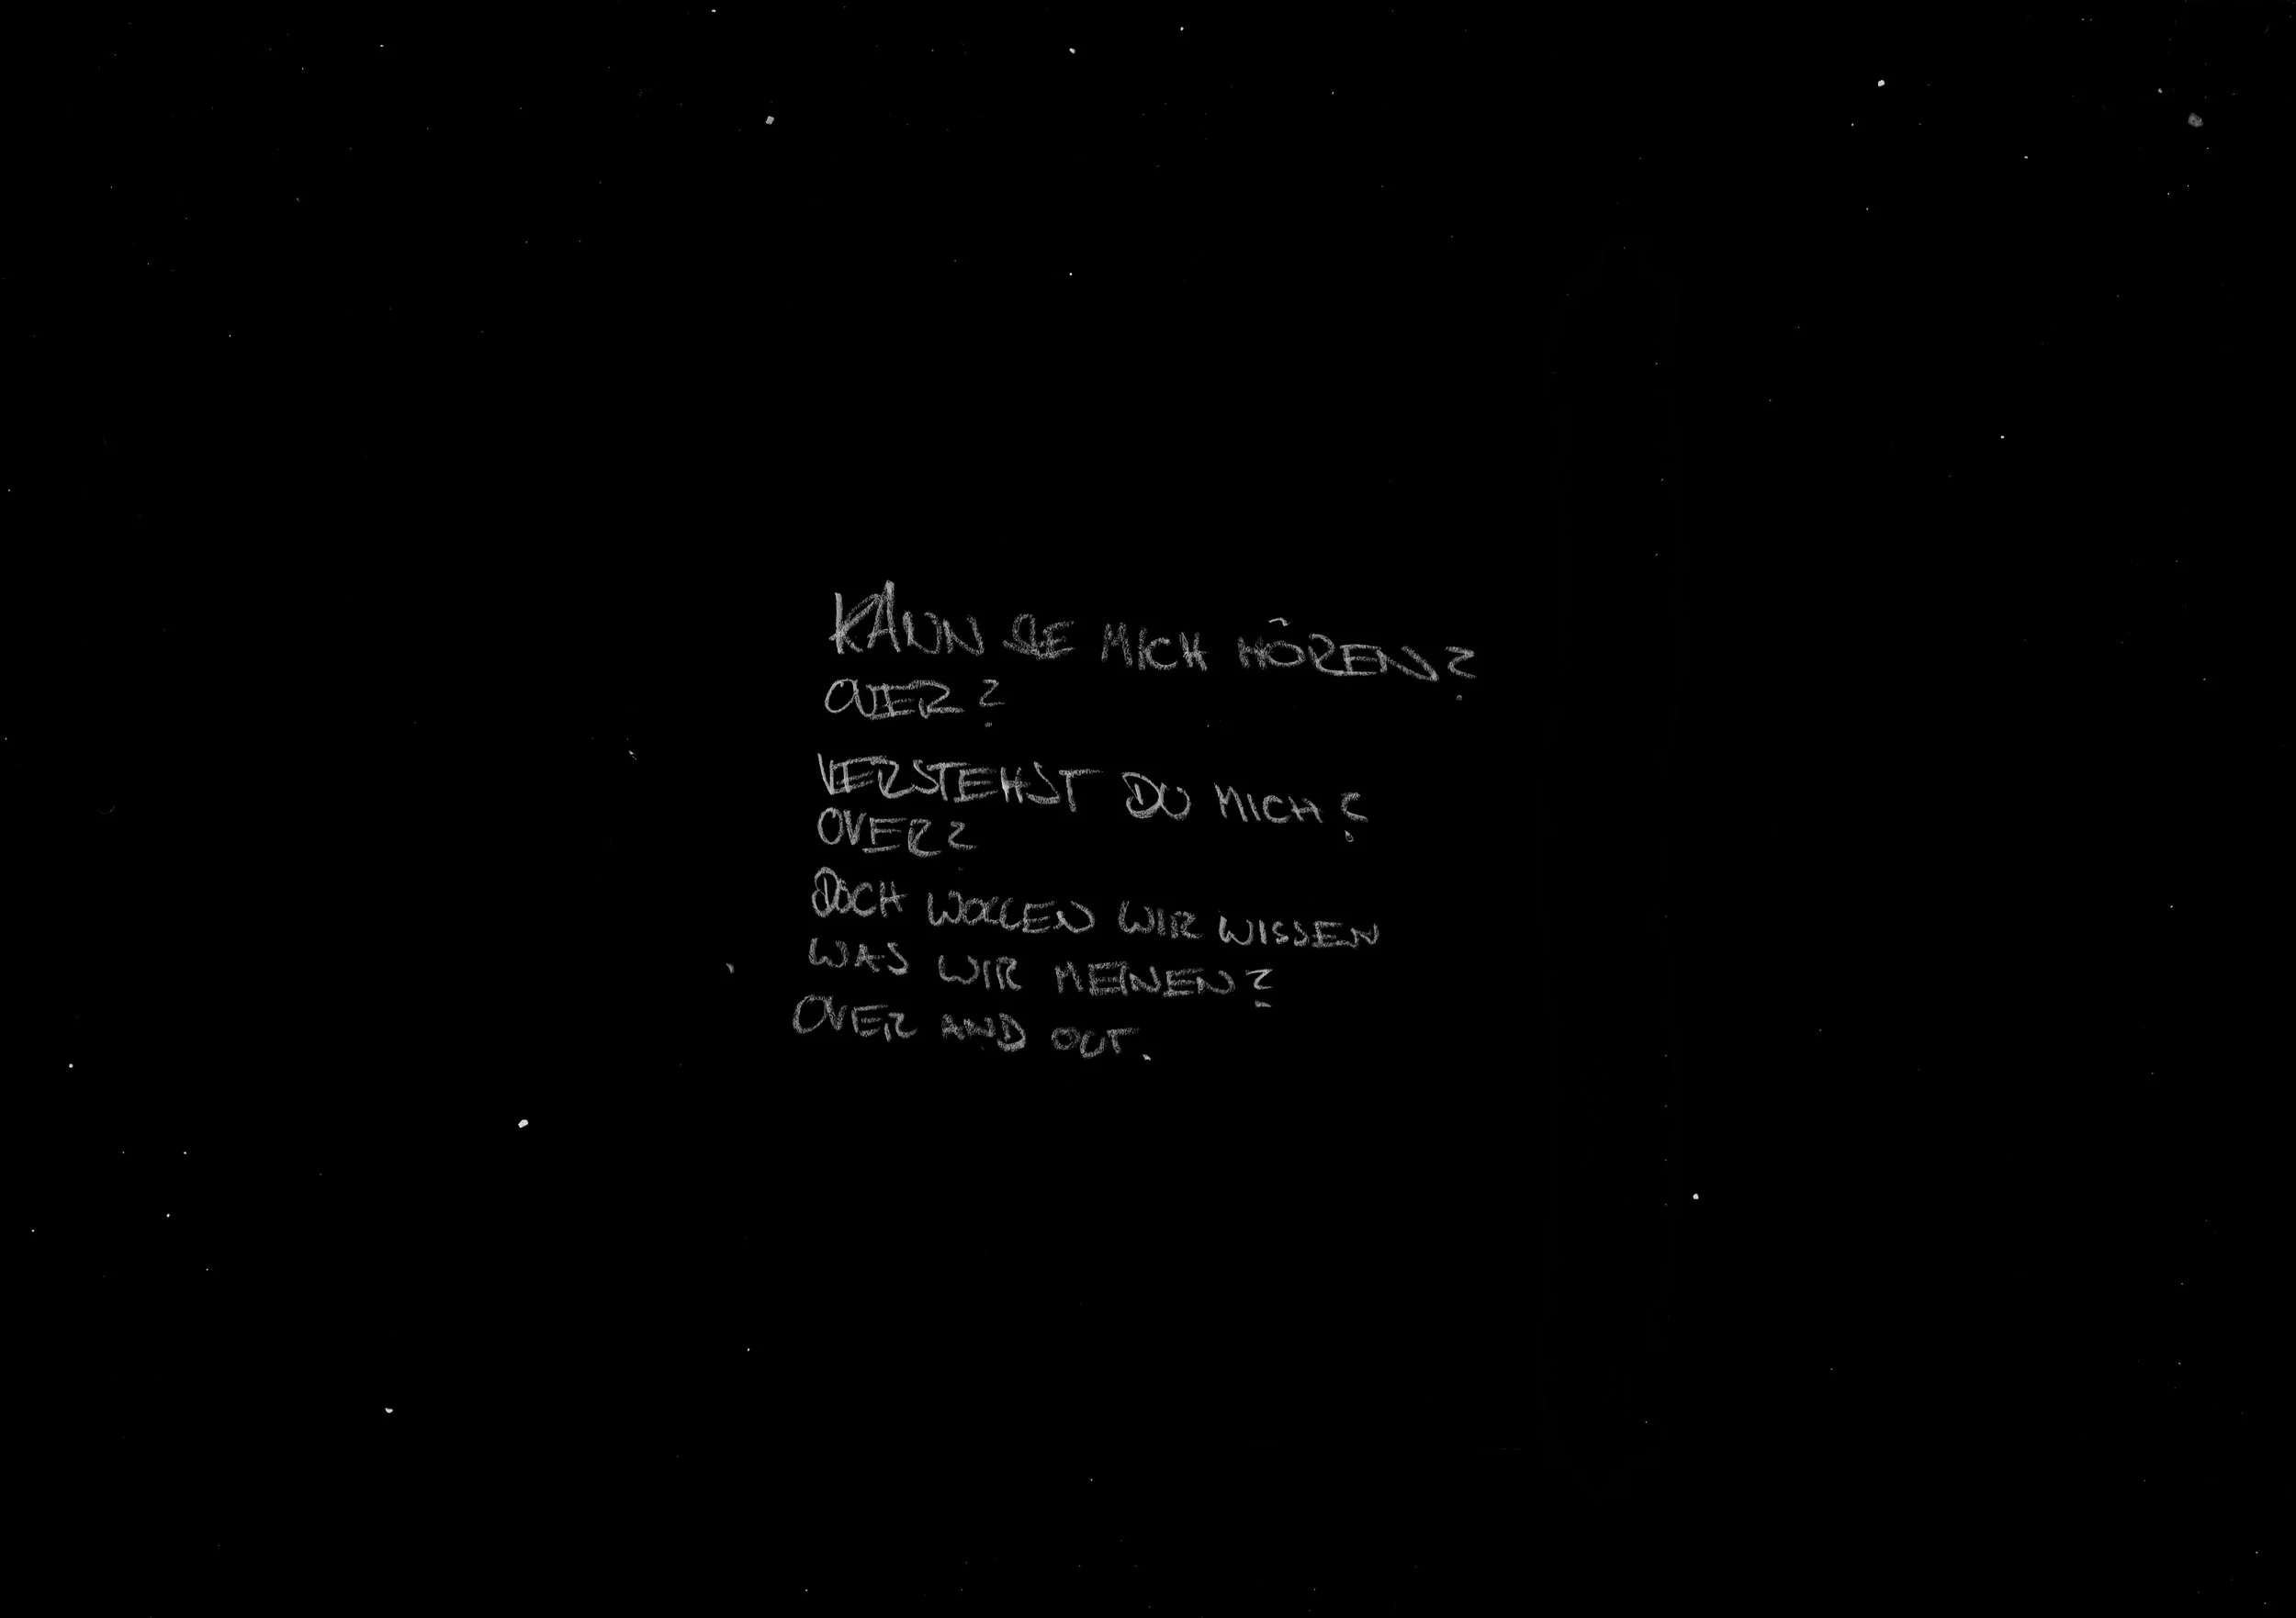 KANN SIE MICH HÖREN?
OVER?
VERSTEHST DU MICH?
OVER?
DOCH WOLLEN WIR WISSEN
WAS WIR MEINEN?
OVER AND OUT.